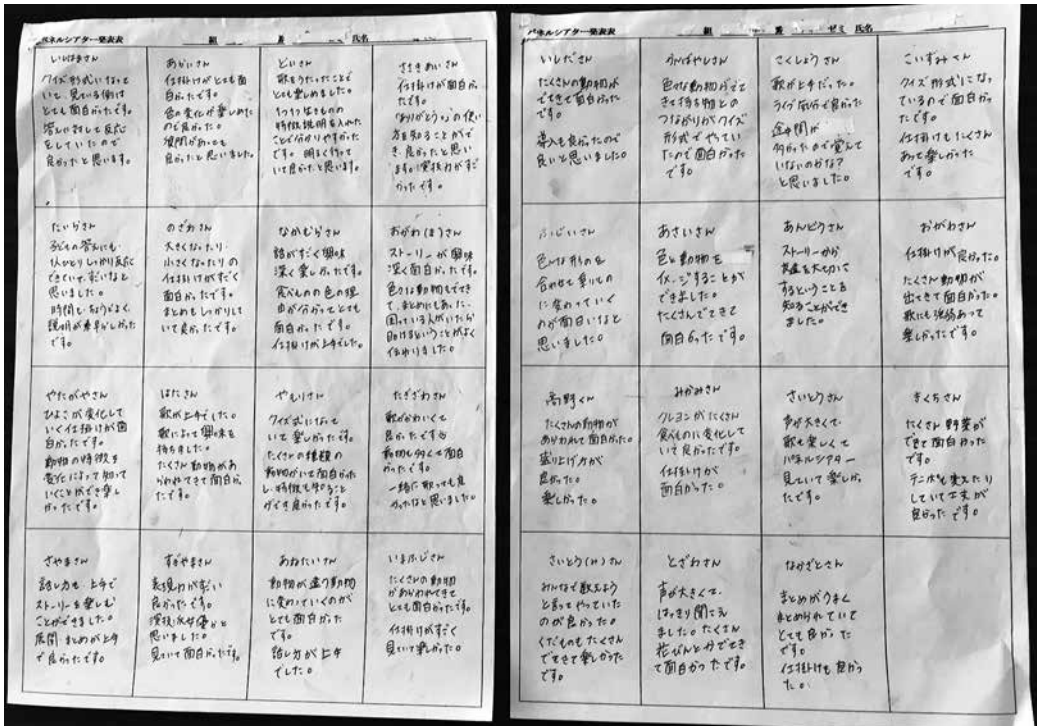 パネルシアター発表表
組
番
氏名
いしはまさん
クイズ形式になって
いて、見ている側は
とても面白かったです。
答えに対して反応
をしていたので
良かったと思います。
あかいさん
仕掛けがとても面
白かったです。
色の変化が楽しめた
ので良かった。
質問があっても
良かったと思いました。
どいさん
歌をうたったことで
とても楽しめました。
1つ1つたべものの
特徴説明を入れた
ことで分かりやすかった
です。明るく行って
いて良かったと思います。
ささきめいさん
仕掛けが面白かっ
たです。
「ありがとう」の使い
方を知ることがで
き、良かったと思い
ます。演技力がすご
かったです。
たいらさん
子どもの答えにも
1人ひとりしっかり反応
できていて、すごいなと
思いました。
時間もちょうどよく、
説明が素早かった
です。
のざわさん
大きくなったり
小さくなったりの
仕掛けがすごく
面白かったです。
まとめもしっかりして
いて良かったです。
なかむらさん
話がすごく興味
深く楽しかったです。
食べものの色の理
由が分かってとても
面白かったです。
仕掛けが上手でした。
おがわ(ほ)さん
ストーリーが興味
深く面白かったです。
色々な動物もでてき
て、まとめにもあった、
困っている人がいたら
助けるということがよく
伝わりました。
やたがやさん
ひよこが変化して
いく仕掛けが面
白かったです。
動物の特徴を
変化によって知って
いくことができ楽し
かったです。
はたさん
歌が上手でした。
歌によって興味を
持ちました。
たくさん動物があ
らわれてきて面白かっ
たです。
やもりさん
クイズ式になって
いて楽しかったです。
たくさんの種類の
動物がいて面白かった
し、特徴も知ること
ができ良かったです。
たきざわさん
歌がかわいくて
良かったです
動物も多くて面白
かったです。
一緒に歌っても良
かったなと思いました。
さやまさん
話し方も上手で
ストーリーを楽しむ
ことができました。
展開、まとめが上手
で良かったです。
すがやまさん
表現力がすごい
良かったです。
演技が女優かと
思いました。
見ていて面白かったです。
あねたいさん
動物が違う動物
に変わっていくのが
とても面白かった
です。
話し方が上手
でした。
いまふじさん
たくさんの動物
があらわれてきて
とても面白かったです。
仕掛けがすごく
見ていて楽しかった。
パネルシアター発表表
組
番
ゼミ 氏名
いしださん
たくさんの動物が
でてきて面白かった
です。
導入も良かったので
良いと思いました。
かんばやしさん
色々な動物がでて
きて持ち物との
つながりがクイズ
形式でやってい
たので面白かった
です。
こくしょうさん
歌が上手だった。
ライブ気分で良かった
です。
途中間が
多かったので覚えて
いないのかな?
と思いました。
こいずみさん
クイズ形式になっ
ているので面白かっ
たです。
仕掛けもたくさん
あって楽しかった
です。
ふじいさん
色々な形のを
合わせて1つもの
に変わっていく
のが面白いなと
思いました。
あさいさん
色々動物を
イメージすることが
できました。
たくさんでてきて
面白かったです。
あんどうさん
ストーリーから
友達を大切に
するということを
知ることができ
ました。
おがわさん
仕掛けが良かった。
たくさん動物が
出てきて面白かった。
歌にも強弱あって
楽しかったです。
高野くん
たくさんの動物が
あらわれて面白かった。
盛り上げ方が
良かった。
楽しかった。
みかみさん
クレヨンがたくさん
食べものに変化して
いて良かったです。
仕掛けが
面白かった。
さいとうさん
声が大きくて、
歌も楽しくて
パネルシアター
見ていて楽しかっ
たです。
きくちさん
たくさん野菜が
でてきて面白かった
です。
テンポも変えたり
していて工夫が
良かったです。
さいとう(み)さん
みんなで歌えよう
と言ってやっていた
のが良かった。
くだものもたくさん
でてきて楽しかった
です。
とざわさん
声が大きくて、
はっきり聞こえ
ました。たくさん
花びんとかでてき
て面白かったです。
なかざとさん
まとめがうまく
まとめられていて
とても良かった
です。
仕掛けも良かっ
た。